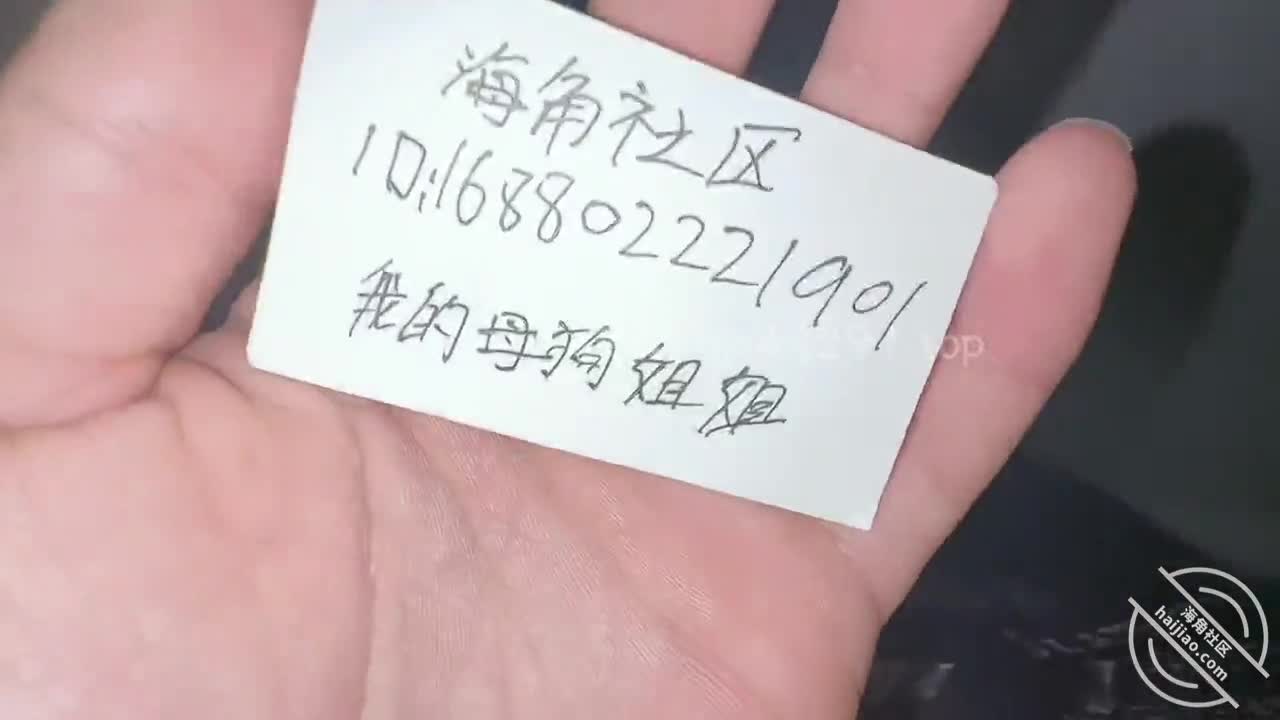 海角社区
ID:168802221901
我的母狗姐姐
海角社区
haijiao.com